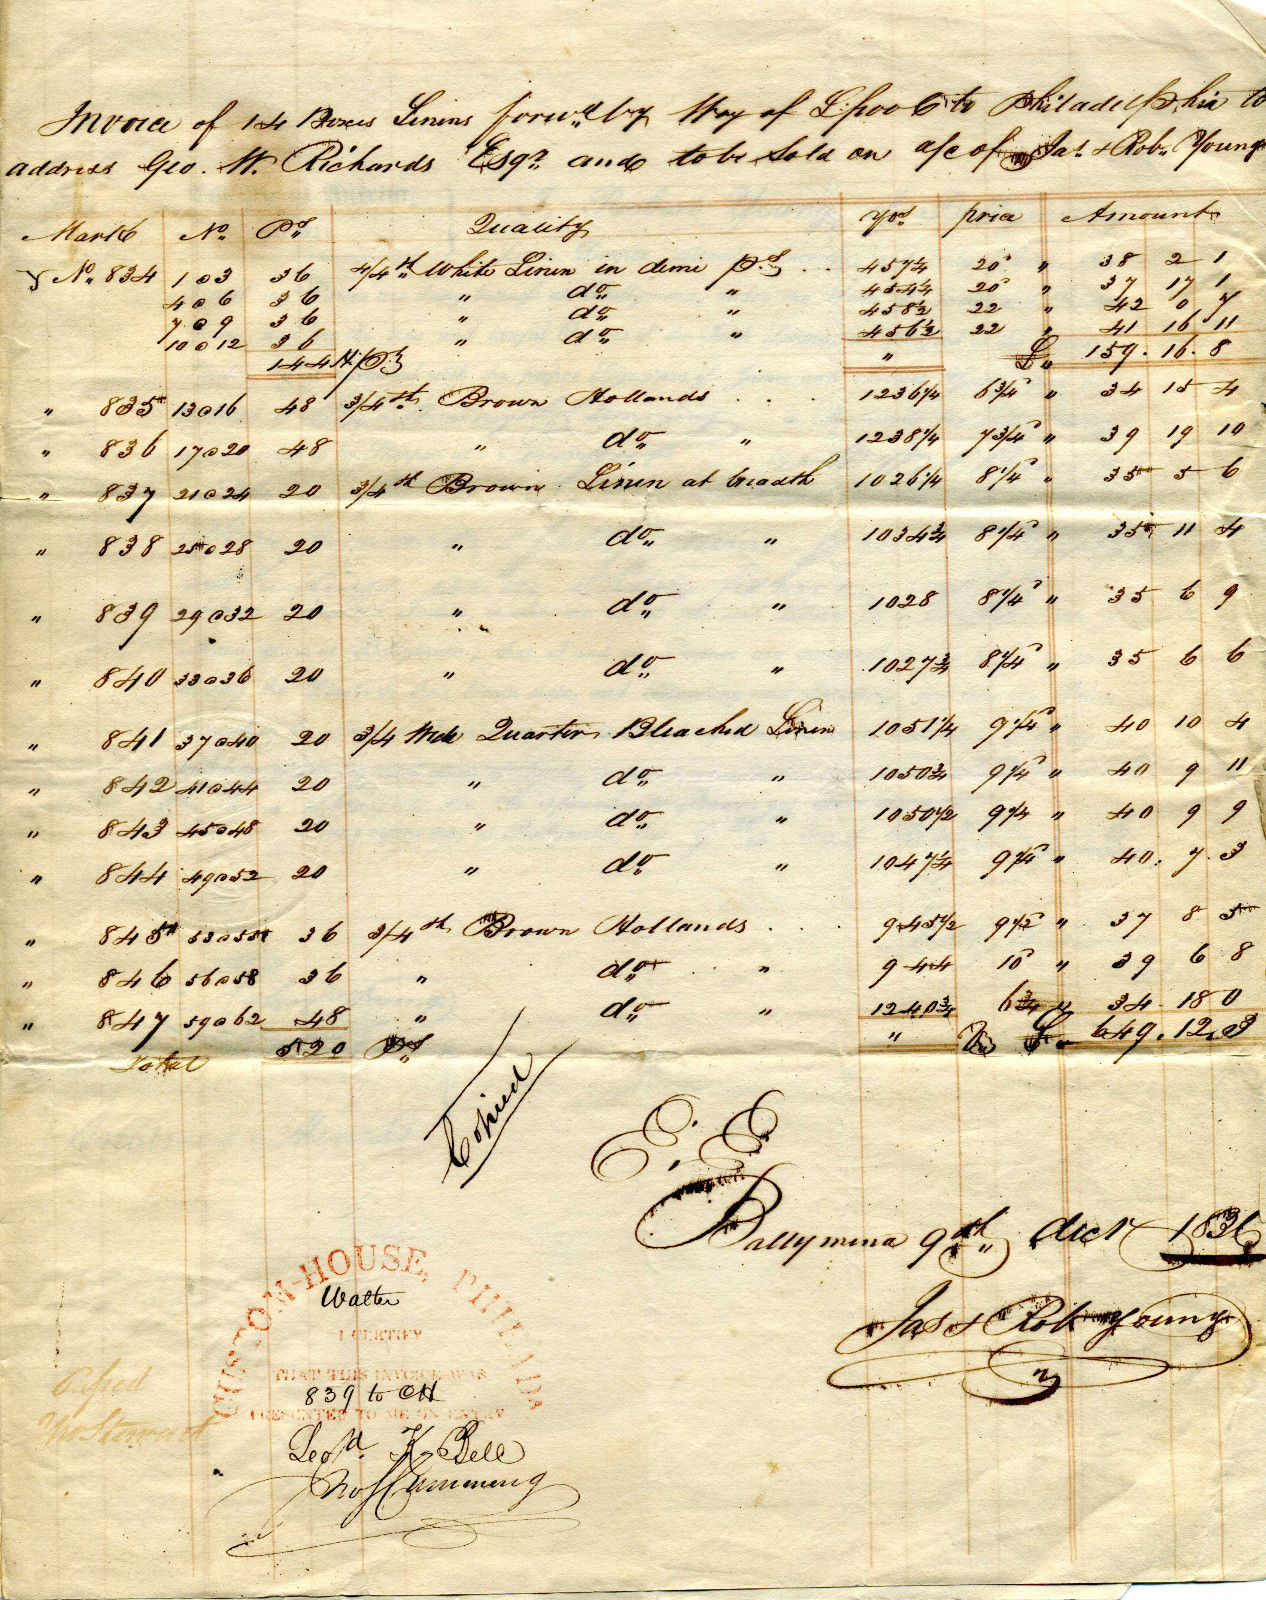 Invoice of 14 Boxes Linens forwd by Way of Lpool to Philadelphia to
address Geo. W. Richards Esqr and to be Sold on a/c of Jas & Robt Young
Mark No. Ps Quality Yds price Amount
Y No. 834 1@3 36 4/4th White Linen in demi ps .. 457¼ 20 " 38 2 1
4@6 36 " do " 454¼ 20 " 37 17 1
7@9 36 " do " 458½ 22 " 42 0 7
10@12 36 " do " 456½ 22 " 41 16 11
144 H/Ps " £ 159.16.8
" 835 13@16 48 3/4th Brown Hollands .... 1236¼ 6¾ " 34 15 4
" 836 17@20 48 " do " 1238¼ 7¾ " 39 19 10
" 837 21@24 20 3/4th Brown Linen at breadth 1026¼ 8¼ " 35 5 6
" 838 25@28 20 " do " 1034¾ 8¼ " 35 11 4
" 839 29@32 20 " do " 1028 8¼ " 35 6 9
" 840 33@36 20 " do " 1027¾ 8¼ " 35 6 6
" 841 37@40 20 3/4 Wide Quarter Bleached Linen 1051¼ 9¼ " 40 10 4
" 842 41@44 20 " do " 1050¾ 9¼ " 40 9 11
" 843 45@48 20 " do " 1050½ 9¼ " 40 9 9
" 844 49@52 20 " do " 1047¼ 9¼ " 40.7.3
" 845 53@55 36 3/4th Brown Hollands .... 945½ 9½ " 37 8 5
" 846 56@58 36 " do " 944 10 " 39 6 8
" 847 59@62 48 " do " 1240¾ 6¾ " 34 18 0
Total 520 Ps " £ 649.12.3
Copied
E. E
Ballymena 9th decr 1836
Jas & Robt Young
CUSTOM-HOUSE, PHILADA.
Walter
I CERTIFY
THAT THIS INVOICE WAS
839 to CH
PRESENTED TO ME ON ENTRY
Leod. K Bell
Jno Cumming
Jno Steward